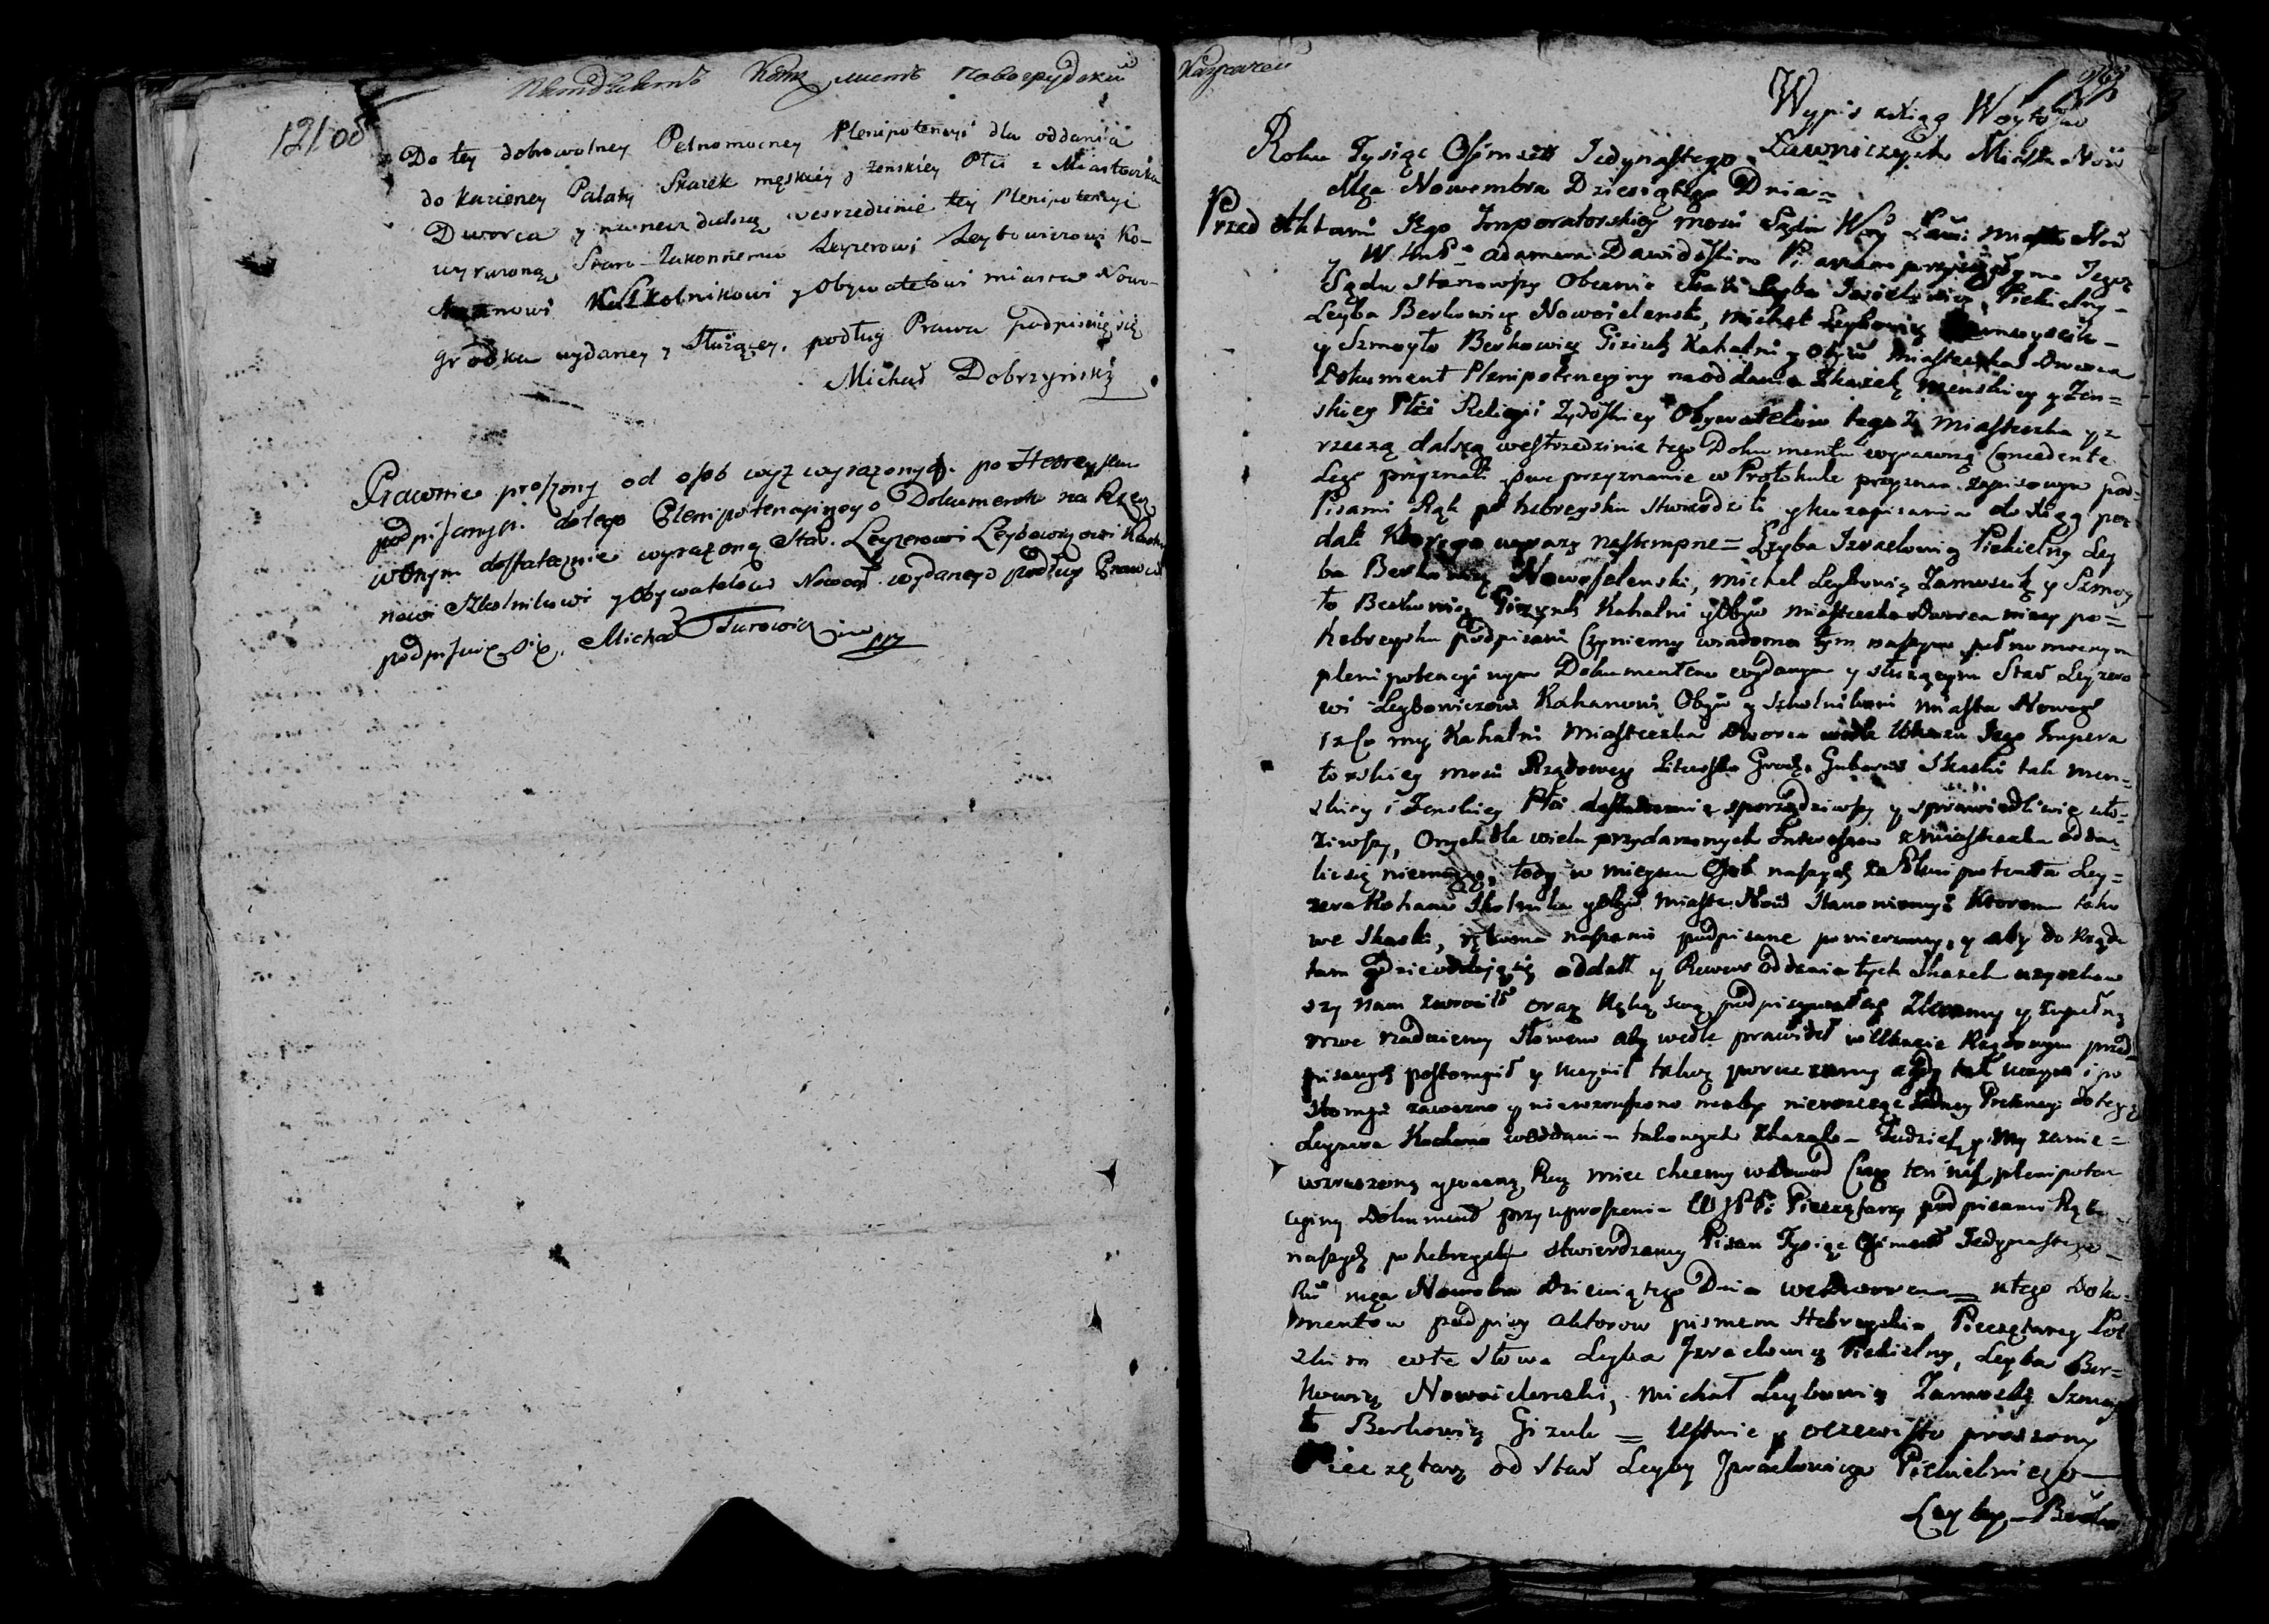 121 об
Do tey dobrowolney Pełnomocney Plenipotencyi dla oddania
do Kazionney Palaty Skazek męskiey y żenskiey Płci z Miasteczka
Dworca y na rzecz dalszą wesrzedzinie tey Plenipotencyi
wyrażoną Staro-Zakonnemu Leyzerowi Leybowiczowi Ko-
hanowi Szkolnikowi y Obywatelowi miasta Nowo-
gródka wydaney y służącey, podług Prawa podpisuię się
Michał Dobrzyński
Prawnie proszony od osob wyż wyrażonych po Hebreysku
podpisanych do tego Plenipotencyinego Dokumentu na Rzecz
w onym dostatecznie wyrażoną Star. Leyzerowi Leybowiczowi Kaha-
nowi Szkolnikowi y Obywatelowi Nowogr. wydanego podług Prawa
podpisuię się. Michał Turowicz
Wypis z xiąg Woytow
Ławniczych Miasta Now
Roku Tysiąc Osimset Jedynastego
Mca Nowembra Dziesiątego Dnia =
Przed Aktami Jego Imperatorskiey mości Sądu Woy Ławi miasta Now
y W Adamem Dawidowskim Pisarzem przysięgłym Tegoż
Sądu stanowszy Obecnie Leyba Izraelowicz Piekielny
Leyba Berkowicz Nowosielenski, Michel Leybowicz
y Szmoyło Berkowicz Giziuk Kahalni y Obyw miasteczka Dworca
Dokument Plenipotencyiny na oddanie Skazek menskiey y Żen=
skiey Płci Religii Żydowskiey Obywatelow tegoż miasteczka y z
rzeczą dalszą wesrzedzinie tego Dokumentu wyrażoną Concedente
Lege przyznali swe przyznanie w Protokule przyznan zapisowym pod-
Pisami Rąk po hebreysku stwierdzili y ku zapisaniu do xiąg po-
dali Którego wyrazy nastempne = Leyba Izraelowicz Piekielny Ley
ba Berkowicz Nowosielenski, Michel Leybowicz Zamoscik y Szmoy
ło Berkowicz Giziuk Kahalni y Obyw miasteczka Dworca niżey po=
hebreysku podpisani Czyniemy wiadomo tym naszym pełnomocnym
plenipotencyinym Dokumentem wydanym y służącym Star Leyzero
wi Leybowiczowi Kahanowi Obyw y Szkolnikowi miasta Nowogr
iż co my Kahalni Miasteczka Dworca wedle Ukazu Jego Impera
torskiey mości Rządowego Litewsko Grodz. Gubernii Skaski tak men-
skiey i Żenskiey Płci dostatecznie sporządziwszy y sprawiedliwie uło-
żiwszy, Onych dla wielu przydarzonych Interesow z miasteczka oddal-
lic się niemogąc, tedy w mieyscu Osob naszych za Plenipotenta Ley=
zera Kohana Szkolnika y Obyw miasta Now Stanowiemy: Któremu tako
we Skaski, rękoma naszemi podpisane powierzamy, y aby do Rządu
tam gdzie oddaią się oddał y Rewers oddania tych Skazek uzyskaw
szy nam zwrócił oraz Ręką swą podpisywał się Zlecamy y zupełną
moc nadaiemy Słowem aby wedle prawideł w Ukazie Rządowym przed-
pisanych postompił y uczynił takową poruczamy a gdy tak uczyni i po
stompi zawżno y niewzruszono maiąc nieroszcząc żadney Pretensyi do tegoż
Leyzera Kochana w oddaniu takowych Skazek - Tudzież y My zanie=
wzruszoną y ważną Rzecz miec chcemy w dowod Czego ten nasz plenipoten
cyiny Dokument przy uproszeniu WJPP: Pieczętarzy podpisami Rąk
naszych po hebreysku stwierdzamy Pisan Tysiąc Osimset Jedynastego
Ru mca Nowebra Dziewiątego Dnia we Dworcu = u tego Doku-
mentow podpisy aktorow pismem Hebreyskim Pieczętarzy Pol
skim w te Słowa Leyba Izraelowicz Piekielny, Leyba Ber=
kowicz Nowosielenski, Michał Leybowicz Zamoscik Szmoy
ło Berkowicz Gizuk = Ustnie y oczewisto proszony
Pieczętarz od Star Leyby Izraelowicza Piekielniego
Leyby Berko